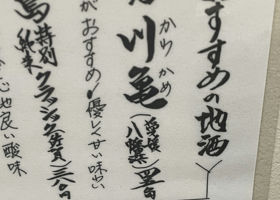 すすめの地酒
かわ かめ
川亀 (愛媛 八幡浜)
がおすすめ！優しくせい味わい
特別純米クラシック
心地良い酸味